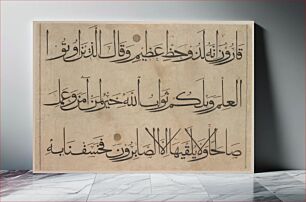 قَارُونُ إِنَّهُ لَذُو حَظٍّ عَظِيمٍ وَقَالَ الَّذِينَ أُوتُوا
الْعِلْمَ وَيْلَكُمْ ثَوَابُ اللَّهِ خَيْرٌ لِمَنْ آمَنَ وَعَمِلَ
صَالِحًا وَلَا يُلَقَّاهَا إِلَّا الصَّابِرُونَ فَخَسَفْنَا بِهِ